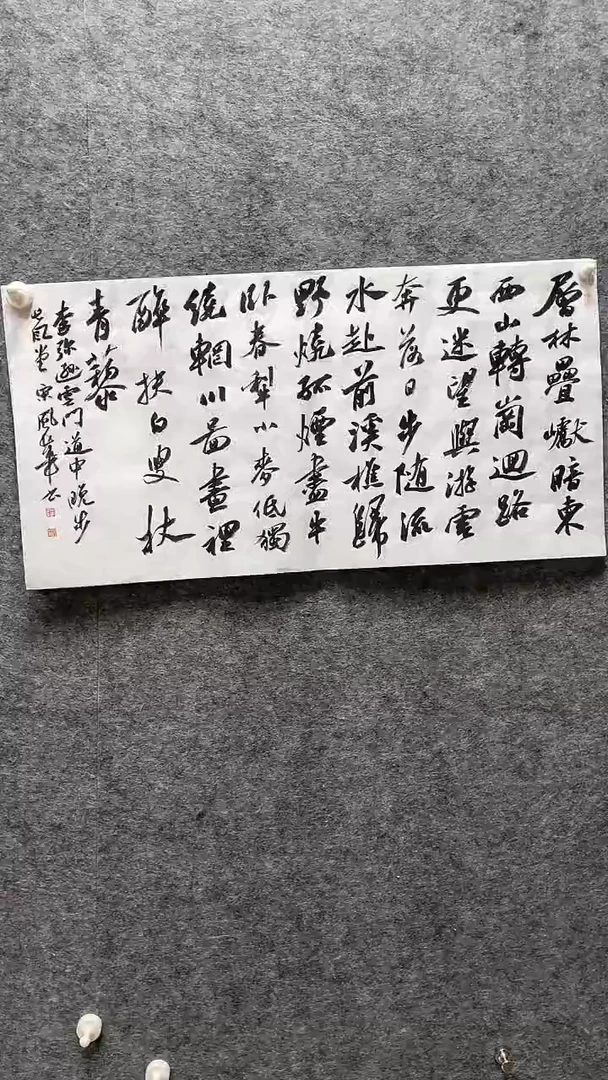 層林疊巘暗東
西山轉崗迴路
更迷望與游雲
奔落日步随流
水赴前溪樵歸
野燒孤煙盡牛
卧春犁小麥低獨
繞輞川圖畫裡
醉扶白叟杖
青藜
李弥遜雲門道中晚步